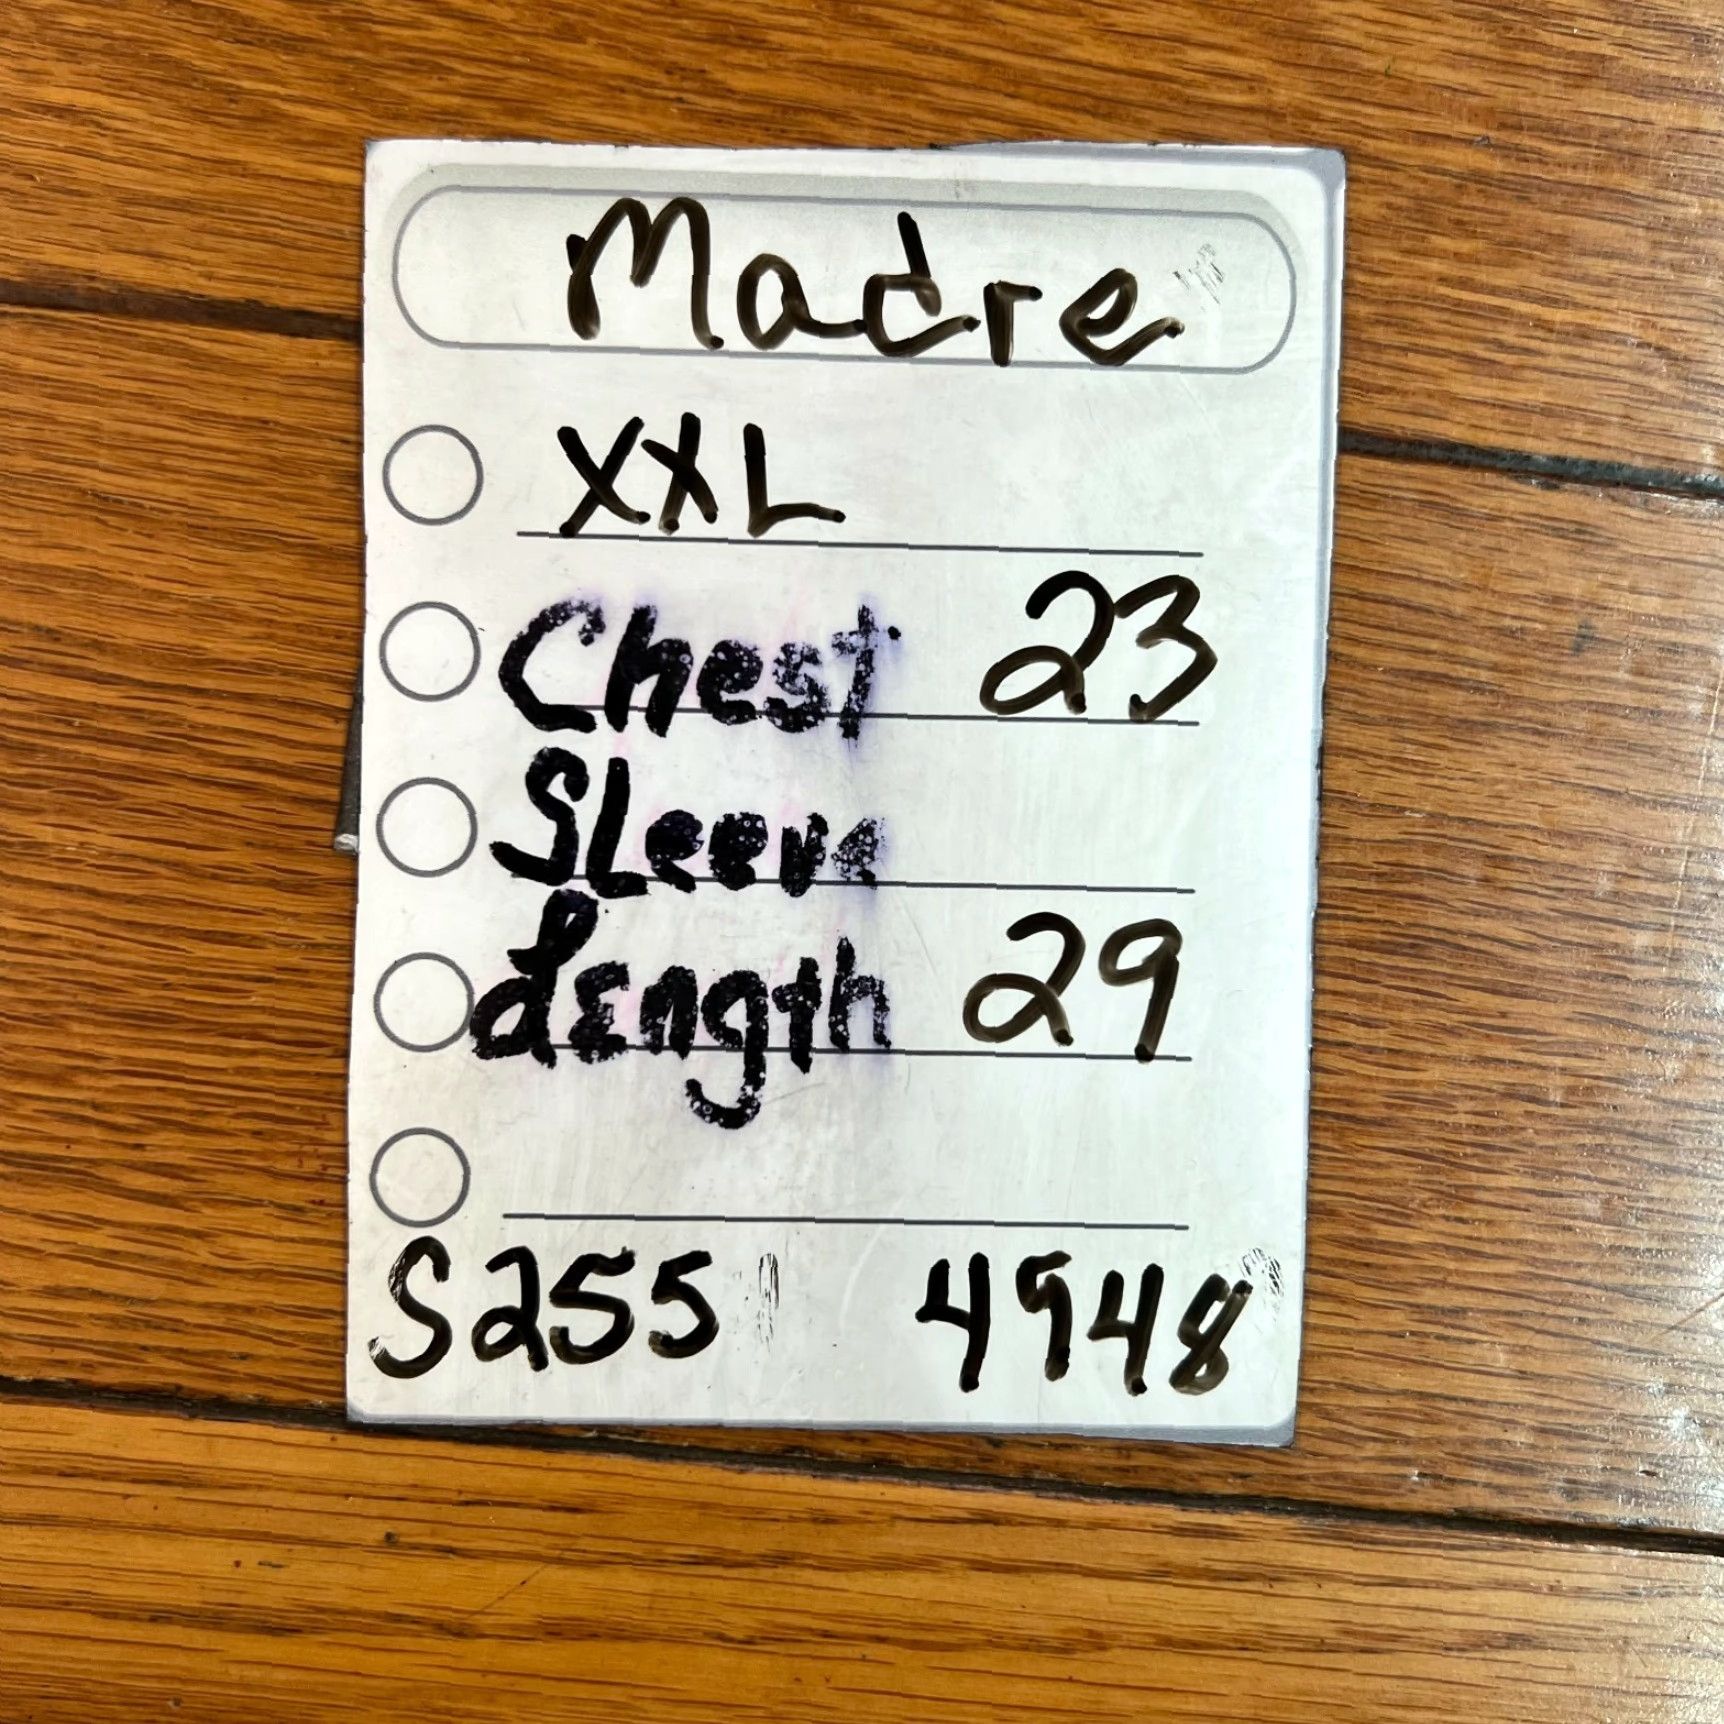 Madre
XXL
Chest 23
SLeeve
Length 29
S255 4948